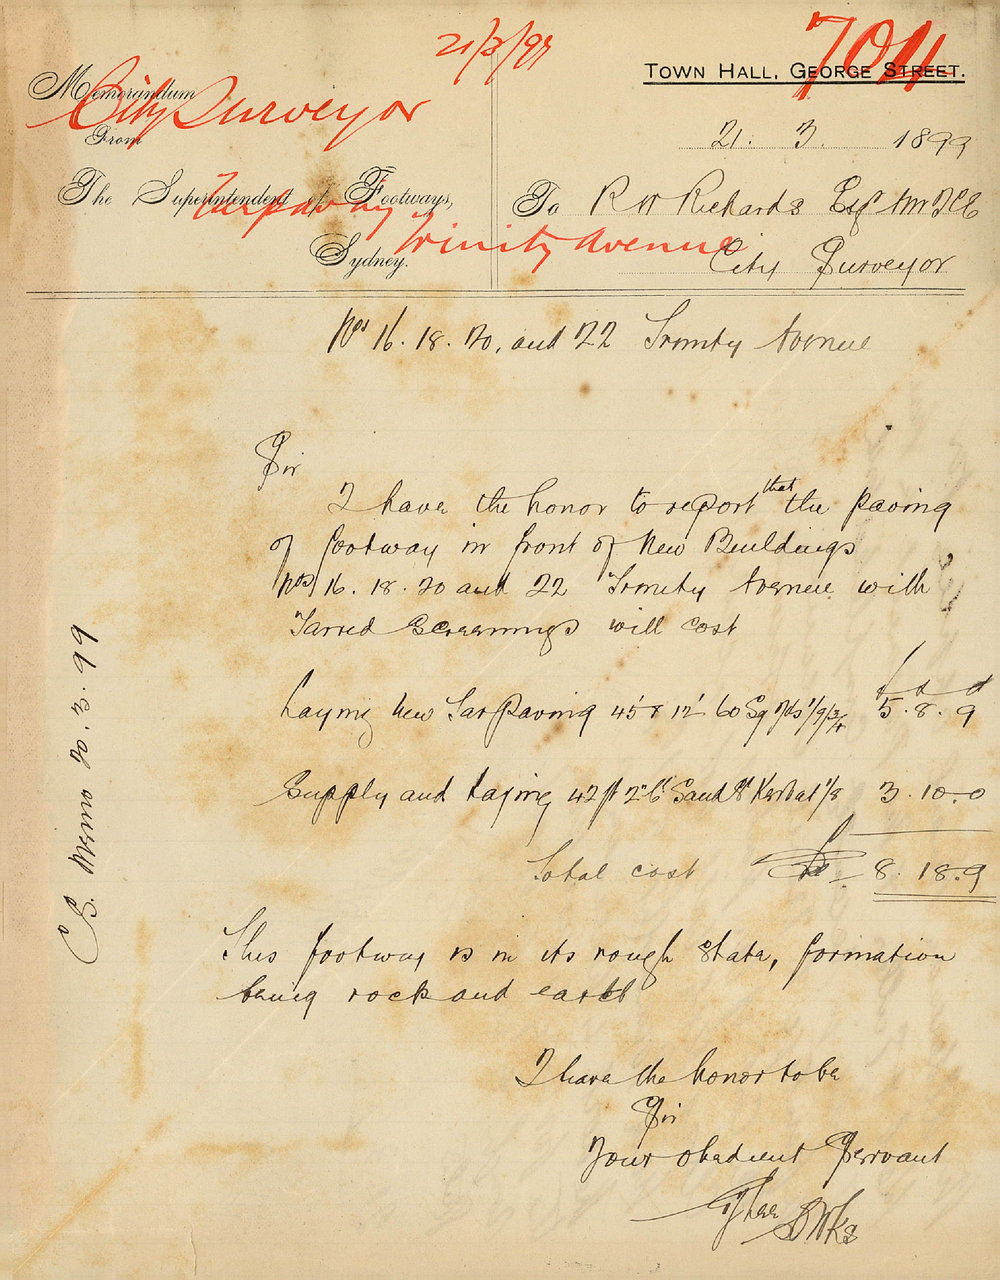 21/3/99
704
TOWN HALL, GEORGE STREET.
Memorandum
City Surveyor
From
21. 3. 1899
The Superintendent of Footways,
Tarpaving
To R W Richards Esq
Trinity Avenue
Sydney.
City Surveyor
Nos 16. 18. 20, and 22 Trinity Avenue
Sir
I have the honor to report that the paving
of footway in front of New Buildings
Nos 16. 18. 20 and 22 Trinity Avenue with
Tarred Screenings will cost
£ s d
Laying New Tar Paving 45' x 12' 60 Sq Yds 1/9 3/4 5. 8. 9
Supply and Laying 42 ft Kerb at 1/8 3. 10. 0
Total cost £ 8. 18. 9
This footway is in its rough state, formation
being rock and earth
I have the honor to be
Sir
Your obedient Servant
C.S. Memo 20. 3. 99